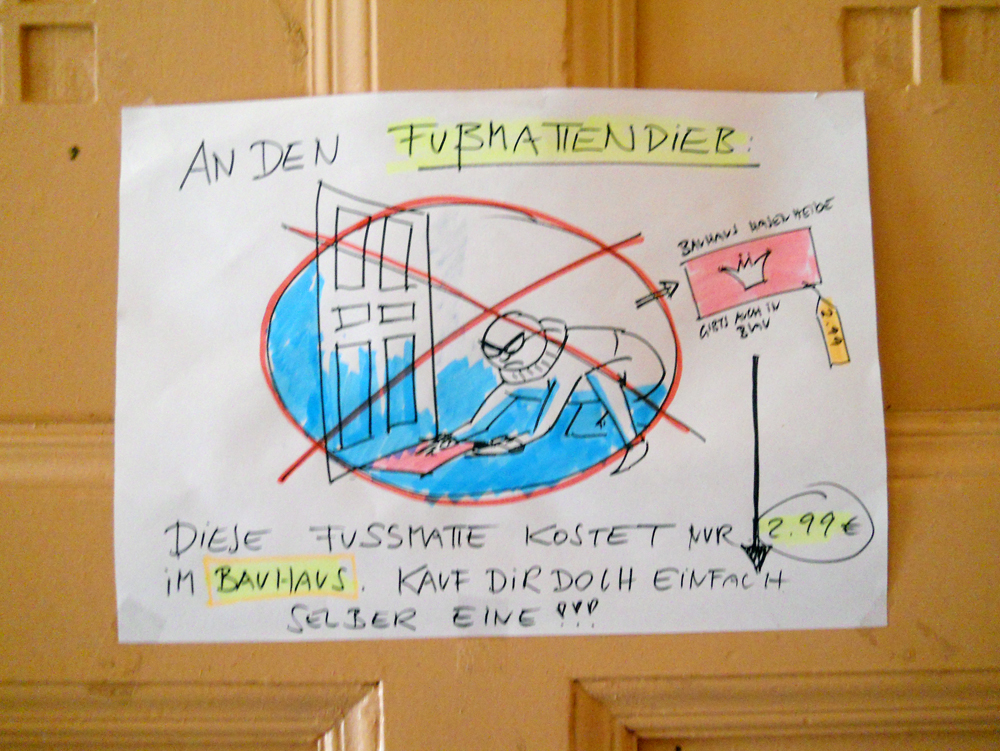 AN DEN FUßMATTENDIEB:
BAUHAUS HASENHEIDE
GIBTS AUCH IN
BLAU
2.99
DIESE FUSSMATTE KOSTET NUR 2.99 €
IM BAUHAUS. KAUF DIR DOCH EINFACH
SELBER EINE !!!